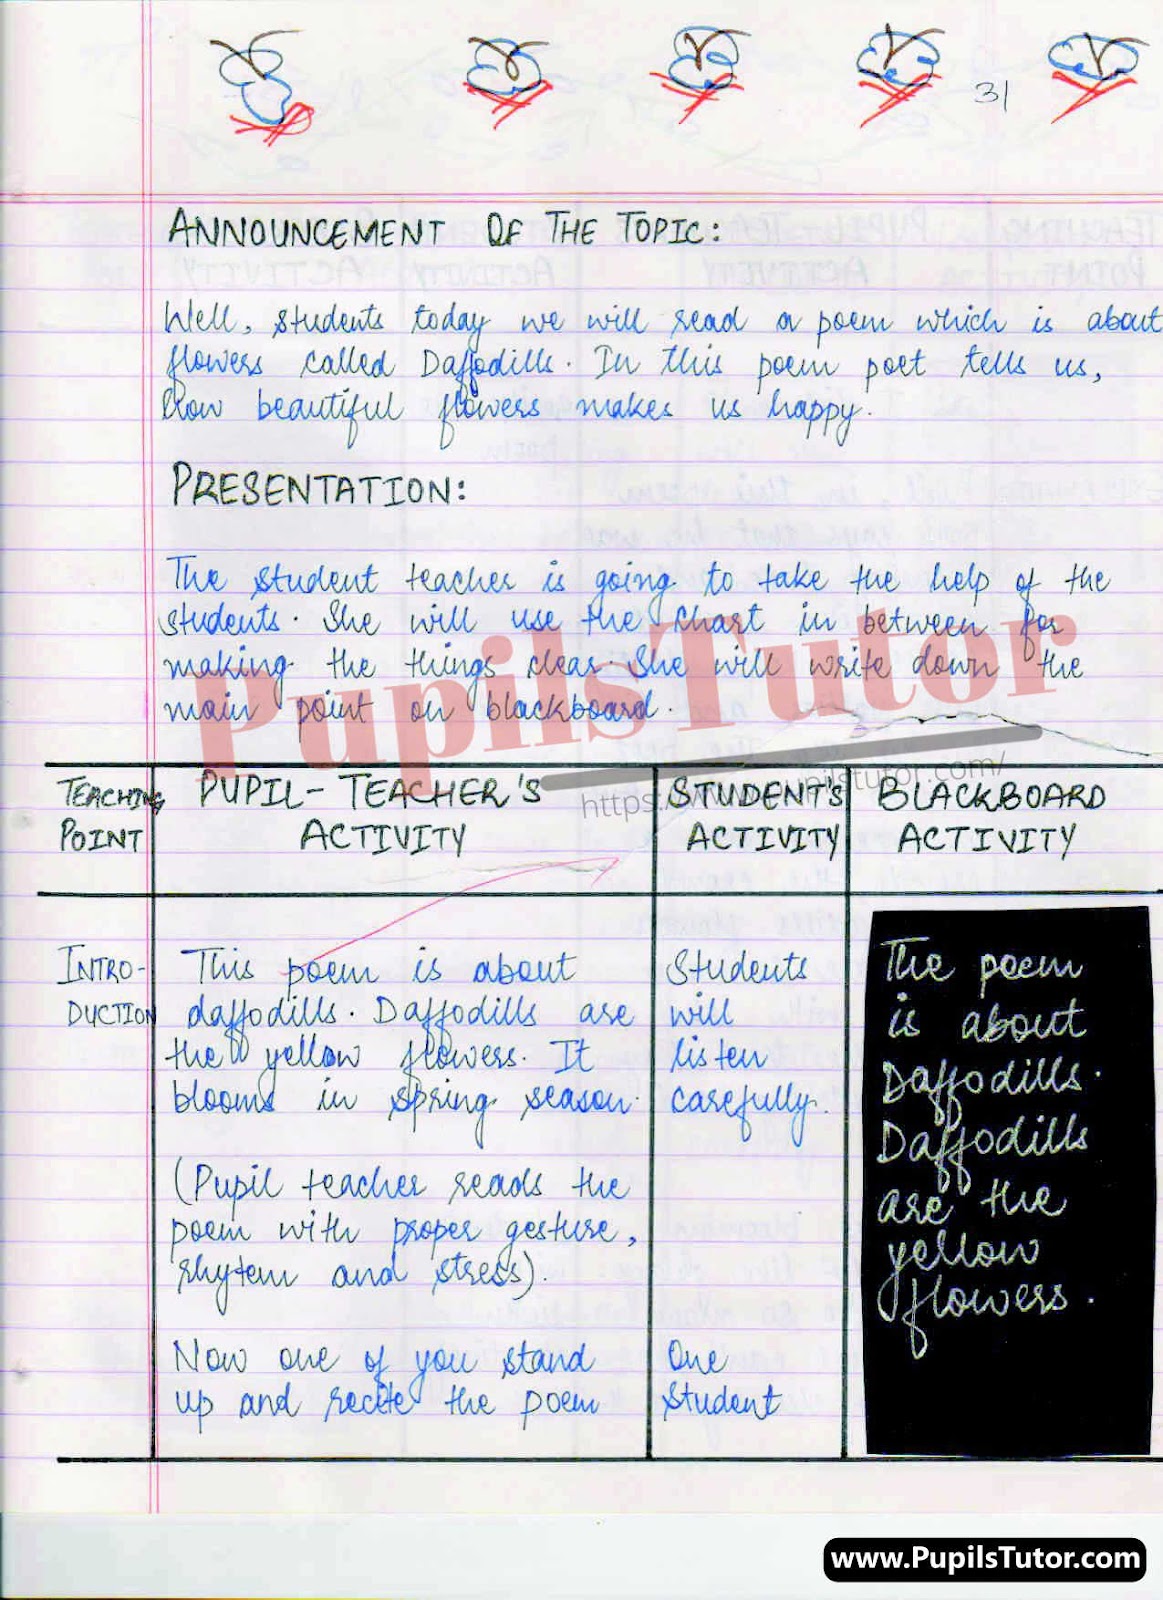 31
ANNOUNCEMENT OF THE TOPIC:
Well, students today we will read a poem which is about
flowers called Daffodills. In this poem poet tells us,
How beautiful flowers makes us happy.
PRESENTATION:
The student teacher is going to take the help of the
students. She will use the chart in between for
making the things clear. She will write down the
main point on blackboard.
PupilsTutor
https://www.pupilstutor.com/
TEACHING
POINT
PUPIL-TEACHER'S
ACTIVITY
STUDENT'S
ACTIVITY
BLACKBOARD
ACTIVITY
INTRO-
DUCTION
This poem is about
daffodills. Daffodills are
the yellow flowers. It
blooms in spring season.
(Pupil teacher reads the
poem with proper gesture,
rhytem and stress).
Now one of you stand
up and recite the poem
Students
will
listen
carefully.
One
student
The poem
is about
Daffodills.
Daffodills
are the
yellow
flowers.
www.PupilsTutor.com